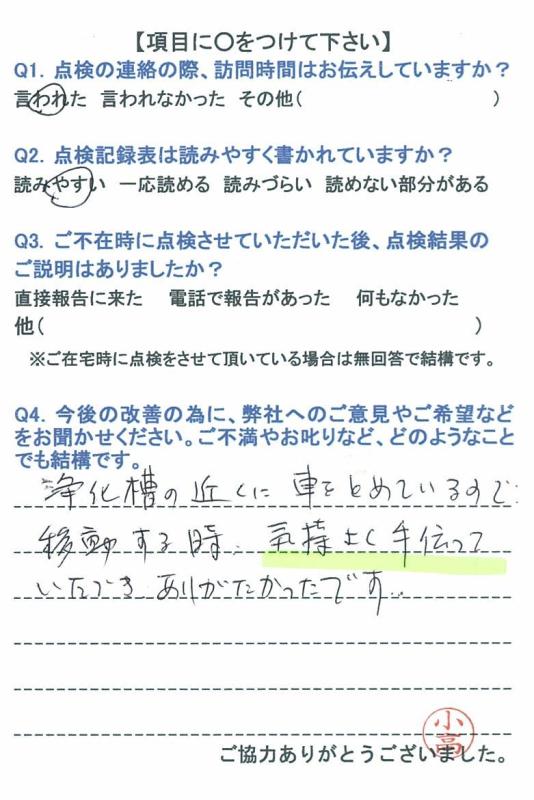 【項目に〇をつけて下さい】
Q1. 点検の連絡の際、訪問時間はお伝えしていますか？
言われた 言われなかった その他( )
Q2. 点検記録表は読みやすく書かれていますか？
読みやすい 一応読める 読みづらい 読めない部分がある
Q3. ご不在時に点検させていただいた後、点検結果の
ご説明はありましたか？
直接報告に来た 電話で報告があった 何もなかった
他( )
※ご在宅時に点検をさせて頂いている場合は無回答で結構です。
Q4. 今後の改善の為に、弊社へのご意見やご希望など
をお聞かせください。ご不満やお叱りなど、どのようなこと
でも結構です。
浄化槽の近くに車をとめているので
移動する時、気持よく手伝って
いただきありがたかったです。
小高
ご協力ありがとうございました。